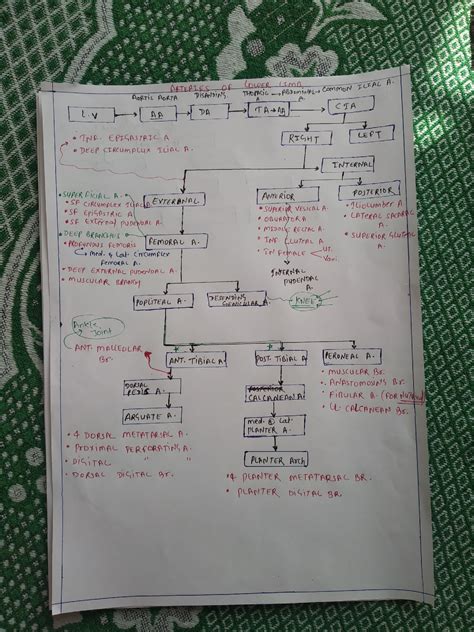 ARTERIES OF LOWER LIMB
AORTIC AORTA
DESANDING
THORACIC → ABDOMINAL → COMMON ILIAC A.
L.V
AA
DA
TA → AA
CIA
RIGHT
LEFT
• INF. EPIGASTRIC A
• DEEP CIRCUMFLUX ILIAC A.
INTERNAL
SUPERFICIAL A.
• SF CIRCUMFLEX ILIAC A
• SF EPIGASTRIC A
• SF EXTERNAL PUDENDAL A
EXTERANAL
ANTERIOR
POSTERIOR
• SUPERIOR VESICAL A.
• OBURATOR A
• MIDDLE RECTAL A.
• INF GLUTEAL A.
• IN FEMALE
UT.
INTERNAL
PUDENDAL
A.
• ILIOLUMBER A
• LATERAL SACRAL
A.
• SUPERIOR GLUTEAL
A.
DEEP BRANCHES
• PROFOUNDUS FEMORIS
Med. & Lat. CIRCUMFLEX
FEMORAL A.
• DEEP EXTERNAL PUDENDAL A
• MUSCULAR BRANCH
FEMORAL A.
POPLITEAL A.
DESENDING
GENICULAR A.
KNEE
Ankle
Joint
ANT. MALLEOLAR
BR.
ANT. TIBIAL A.
POST. TIBIAL A
PERONEAL A.
• MUSCULAR BR.
• ANASTOMOSING BR.
• FIBULAR A.
• CALCANEAN BR.
DORSAL
PEDIS A.
ARCUATE A.
CALCANEAN A.
med. & Lat.
PLANTER A.
PLANTER Arch
• 4 DORSAL METATARSAL A.
• PROXIMAL PERFORATING A.
• DIGITAL " "
• DORSAL DIGITAL BR.
• 4 PLANTER METATARSAL BR.
• PLANTER DIGITAL BR.